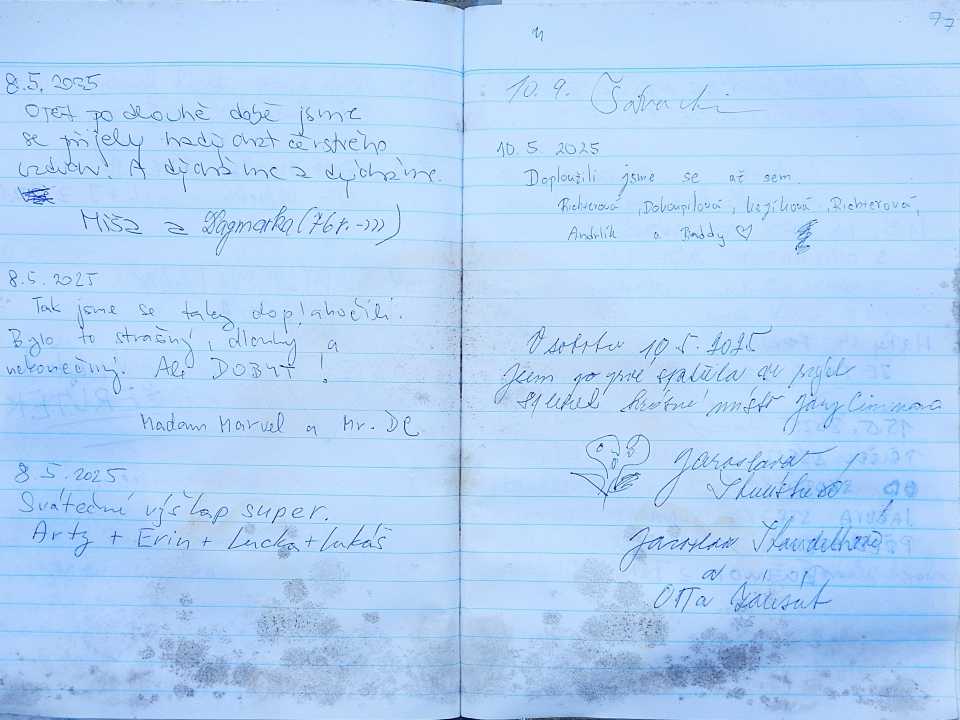 8.5. 2025
Opět po dlouhé době jsme
se přijely nadýchat čerstvého
vzduchu! A dýcháme a dýcháme.
Míša a Dagmarka (76 r. -)))
8.5. 2025
Tak jsme se taky doplahočili.
Bylo to strašný, dlouhý a
nekonečný! Ale DOBYT!
Madam Marvel a Mr. DC
8.5.2025.
Sváteční výšlap super.
Arty + Erin + Lucka + Lukáš
77
10. 9.
10.5. 2025
Doploužili jsme se až sem.
Richterová, Dokoupilová, Richterová,
Andrlík a Buddy ♡
V sobotu 10.5.2025
Jsem po prvé
krásné místo Járy Cimrmana
Jaroslava
Jaroslav
a
Otta